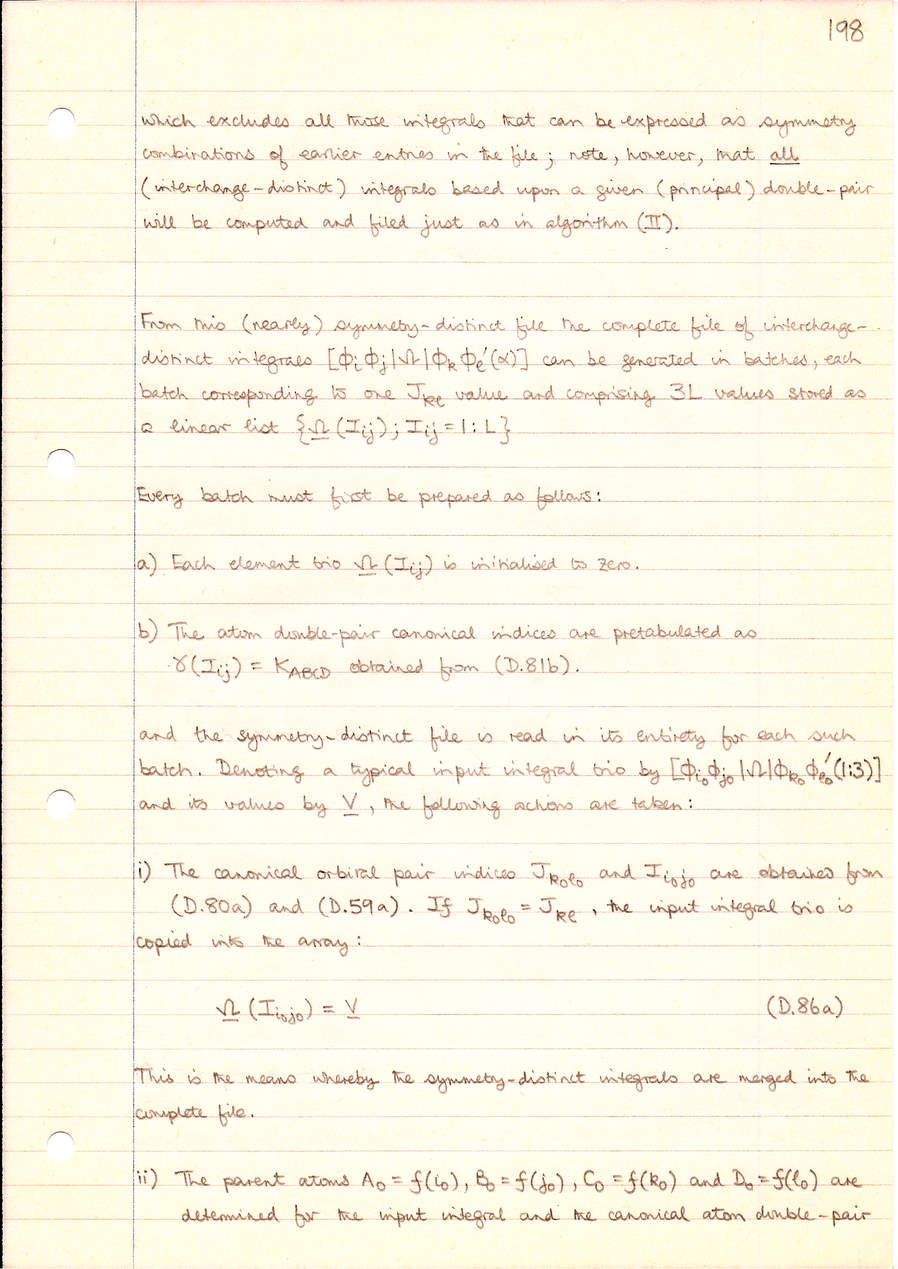 198
which excludes all those integrals that can be expressed as symmetry
combinations of earlier entries in the file; note, however, that all
(interchange-distinct) integrals based upon a given (principal) double-pair
will be computed and filed just as in algorithm (II).
From this (nearly) symmetry-distinct file the complete file of interchange-
distinct integrals [ϕᵢϕⱼ|Ω|ϕₖϕₗ′(α)] can be generated in batches, each
batch corresponding to one Jₖₗ value and comprising 3L values stored as
a linear list {Ω(Iᵢⱼ); Iᵢⱼ=1:L}
Every batch must first be prepared as follows:
a) Each element trio Ω(Iᵢⱼ) is initialised to zero.
b) The atom double-pair canonical indices are pretabulated as
γ(Iᵢⱼ) = K_ABCD obtained from (D.81b).
and the symmetry-distinct file is read in its entirety for each such
batch. Denoting a typical input integral trio by [ϕᵢ₀ϕⱼ₀|Ω|ϕₖ₀ϕₗ₀′(1:3)]
and its values by V, the following actions are taken:
i) The canonical orbital pair indices Jₖ₀ₗ₀ and Iᵢ₀ⱼ₀ are obtained from
(D.80a) and (D.59a). If Jₖ₀ₗ₀ = Jₖₗ, the input integral trio is
copied into the array:
Ω(Iᵢ₀ⱼ₀) = V (D.86a)
This is the means whereby the symmetry-distinct integrals are merged into the
complete file.
ii) The parent atoms A₀ = f(i₀), B₀ = f(j₀), C₀ = f(k₀) and D₀ = f(l₀) are
determined for the input integral and the canonical atom double-pair